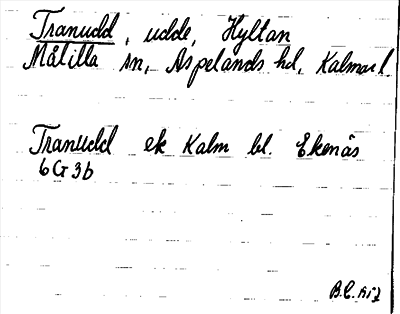 Tranudd, udde, Hyltan
Målilla sn, Aspelands hd, Kalmar l.
Tranudd ek Kalm bl. Ekenäs
6G3b